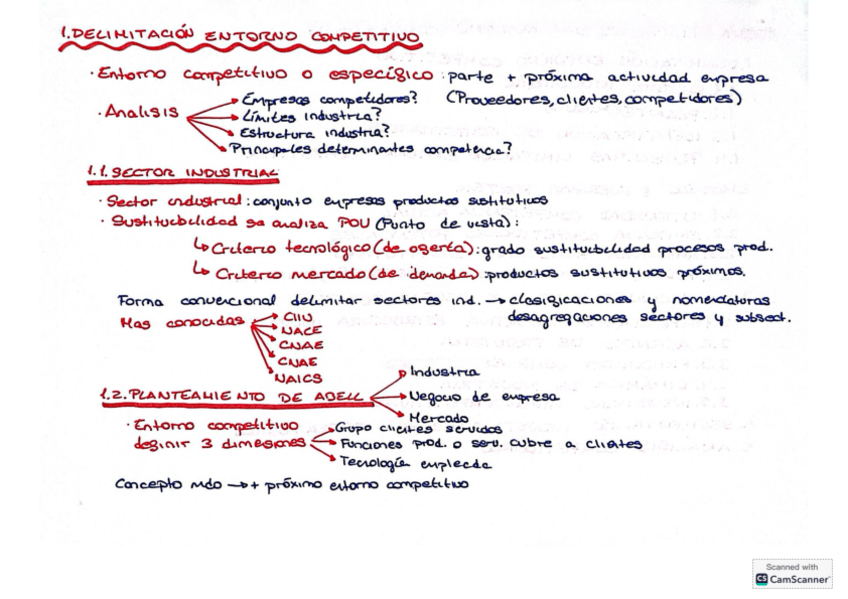 1.DELIMITACIÓN ENTORNO COMPETITIVO
· Entorno competitivo o específico : parte + próxima actividad empresa
(Proveedores, clientes, competidores)
· Analisis
Empresas competidores?
Límites industria?
Estructura industria?
Principales determinantes competencia?
1.1. SECTOR INDUSTRIAL
· Sector industrial : conjunto empresas productos sustitutivos
· Sustituibilidad se analiza POV (Punto de vista) :
↳ Criterio tecnológico (de oferta) : grado sustituibilidad procesos prod.
↳ Criterio mercado (de demanda) : productos sustitutivos próximos.
Forma convencional delimitar sectores ind. → clasificaciones y nomenclaturas
desagregaciones sectores y subsect.
Mas conocidas
CIIU
NACE
CNAE
CNAE
NAICS
1.2. PLANTEAMIENTO DE ABELL
Industria
Negocio de empresa
Mercado
· Entorno competitivo
definir 3 dimesiones
Grupo clientes servidos
Funciones prod. o serv. cubre a clientes
Tecnología empleada
Concepto mdo → + próximo entorno competitivo
Scanned with
CS CamScanner